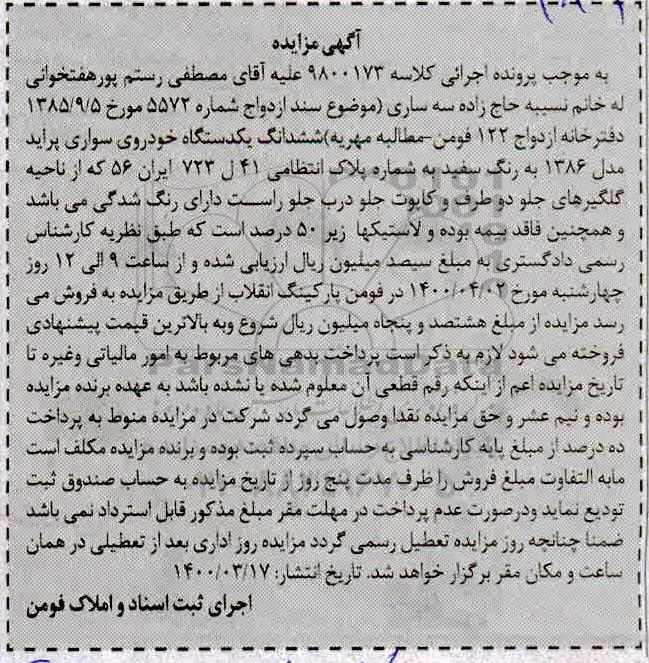 آگهی مزایده
به موجب پرونده اجرائی کلاسه ۹۸۰۰۱۷۳ علیه آقای مصطفی رستم پورهفتخوانی
له خانم نسیبه حاج زاده سه ساری (موضوع سند ازدواج شماره ۵۵۷۲ مورخ ۱۳۸۵/۹/۵
دفترخانه ازدواج ۱۲۲ فومن-مطالبه مهریه)ششدانگ یکدستگاه خودروی سواری پراید
مدل ۱۳۸۶ به رنگ سفید به شماره پلاک انتظامی ۴۱ ل ۷۲۳ ایران ۵۶ که از ناحیه
گلگیرهای جلو دو طرف و کاپوت جلو درب جلو راست دارای رنگ شدگی می باشد
و همچنین فاقد بیمه بوده و لاستیکها زیر ۵۰ درصد است که طبق نظریه کارشناس
رسمی دادگستری به مبلغ سیصد میلیون ریال ارزیابی شده و از ساعت ۹ الی ۱۲ روز
چهارشنبه مورخ ۱۴۰۰/۰۴/۰۲ در فومن پارکینگ انقلاب از طریق مزایده به فروش می
رسد مزایده از مبلغ هشتصد و پنجاه میلیون ریال شروع وبه بالاترین قیمت پیشنهادی
فروخته می شود لازم به ذکر است پرداخت بدهی های مربوط به امور مالیاتی وغیره تا
تاریخ مزایده اعم از اینکه رقم قطعی آن معلوم شده یا نشده باشد به عهده برنده مزایده
بوده و نیم عشر و حق مزایده نقدا وصول می گردد شرکت در مزایده منوط به پرداخت
ده درصد از مبلغ پایه کارشناسی به حساب سپرده ثبت بوده و برنده مزایده مکلف است
مابه التفاوت مبلغ فروش را ظرف مدت پنج روز از تاریخ مزایده به حساب صندوق ثبت
تودیع نماید ودرصورت عدم پرداخت در مهلت مقر مبلغ مذکور قابل استرداد نمی باشد
ضمنا چنانچه روز مزایده تعطیل رسمی گردد مزایده روز اداری بعد از تعطیلی در همان
ساعت و مکان مقر برگزار خواهد شد. تاریخ انتشار: ۱۴۰۰/۰۳/۱۷
اجرای ثبت اسناد و املاک فومن
ParsNamadData